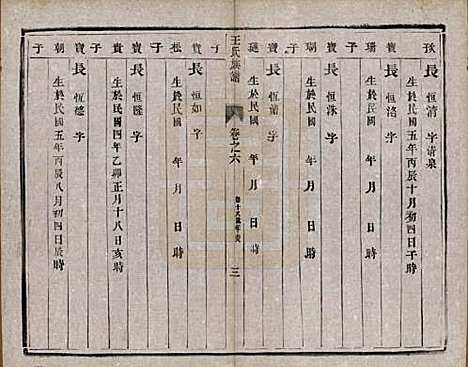 長 恒清 字清泉
生於民國五年丙辰十月初四日子時
寶
長 恒洛 字
生於民國 年 月 日 時
瑞 子
寶
長 恒洙 字
生於民國 年 月 日 時
瑚 子
寶
長 恒 字
生於民國 年 月 日 時
璉 子
王氏族譜
卷之六
三
寶
長 恒如 字
生於民國 年 月 日 時
松 子
寶
長 恒隆 字
生於民國四年乙卯正月十八日亥時
貴 子
寶
長 恒德 字
生於民國五年丙辰八月初四日辰時
朝 子